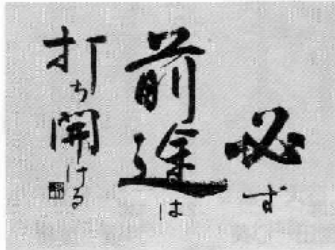 必ず
前途は
打ち開ける